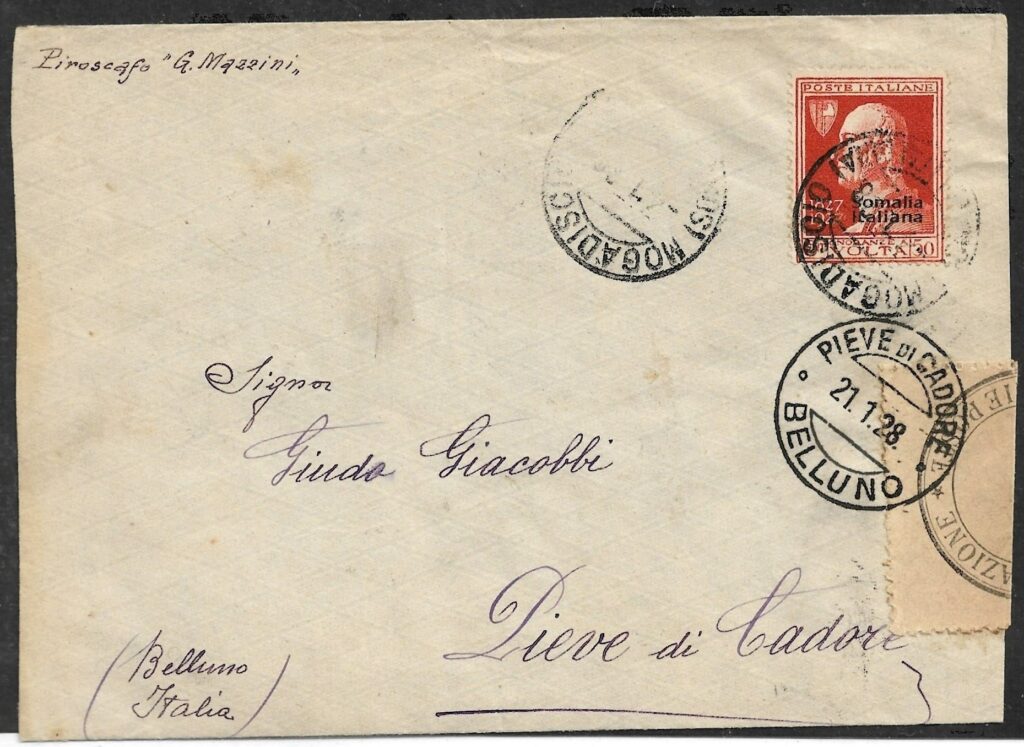 Piroscafo "G. Mazzini"
POSTE ITALIANE
1927
Somalia
Italiana
VOLTA
MOGADISCIO
MOGADISCIO
PIEVE DI CADORE
21.1.28
BELLUNO
AZIONE ★
Signor
Giudo Giacobbi
Pieve di Cadore
(Belluno
Italia)